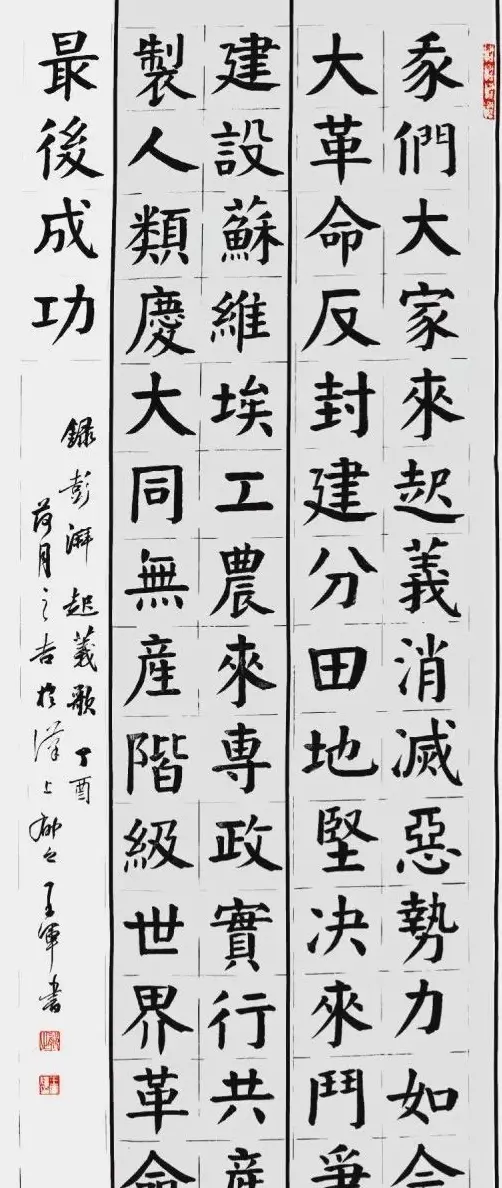 我們大家來起義消滅惡勢力如今
大革命反封建分田地堅决來鬥爭
建設蘇維埃工農來專政實行共産
製人類慶大同無産階級世界革命
最後成功
錄彭湃起義歌丁酉
荷月之吉於漢上王軍書